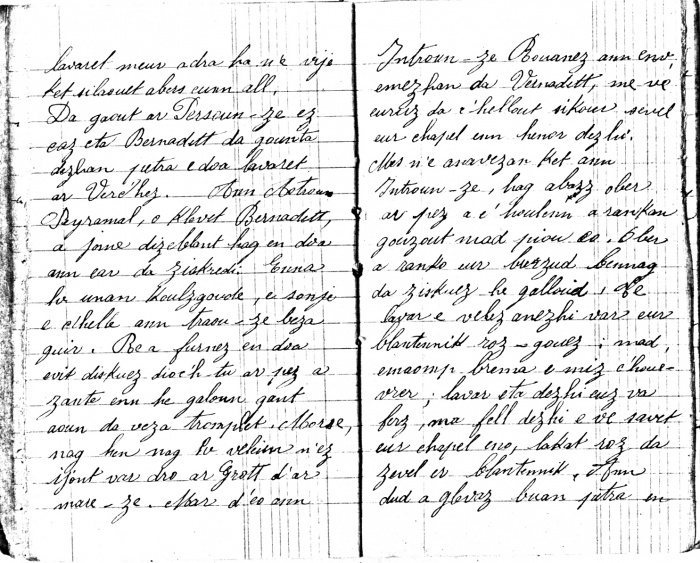 lavaret meur adra ha ne vije
ket silaouet abers eunn all.
Da gaout ar Persoun-ze ez
eaz eta Bernadett da gounta
dezhan petra e doa lavaret
ar Verc'hez. Ann Aotroun
Peyramal, o klevet Bernadett,
a jome dizeblant hag en doa
ann ear da ziskredi. Enna
he unan koulzgoude, e sonje
e c'helle ann traou-ze beza
guir. Re a furnez en doa
evit diskuez dioc'h-tu ar pez a
zante enn he galoun gant
aoun da veza tromplet. Morse,
nag hen nag he veleien n'ez
ijont var dro ar Grott d'ar
mare-ze. Mar d'eo ann
Introun-ze Rouanez ann env,
emezhan da Vernadett, me ve
eurus da c'hellout sikour sevel
eur chapel enn henor dezhi.
Mes n'e anavezan ket ann
Introun-ze, hag abarz ober
ar pez a c'houlenn a rankan
gouzout mad piou eo. Ober
a ranko eur burzud bennag
da ziskuez he galloud. Te
lavar e velez anezhi var eur
blantennik roz-gouez; mad,
emaomp brema e miz c'houe-
vrer; lavar eta dezhi euz va
ferz, ma fell dezhi e ve savet
eur chapel eno, lakat roz da
zevel er blantennik. Ann
dud a glevaz buan petra en